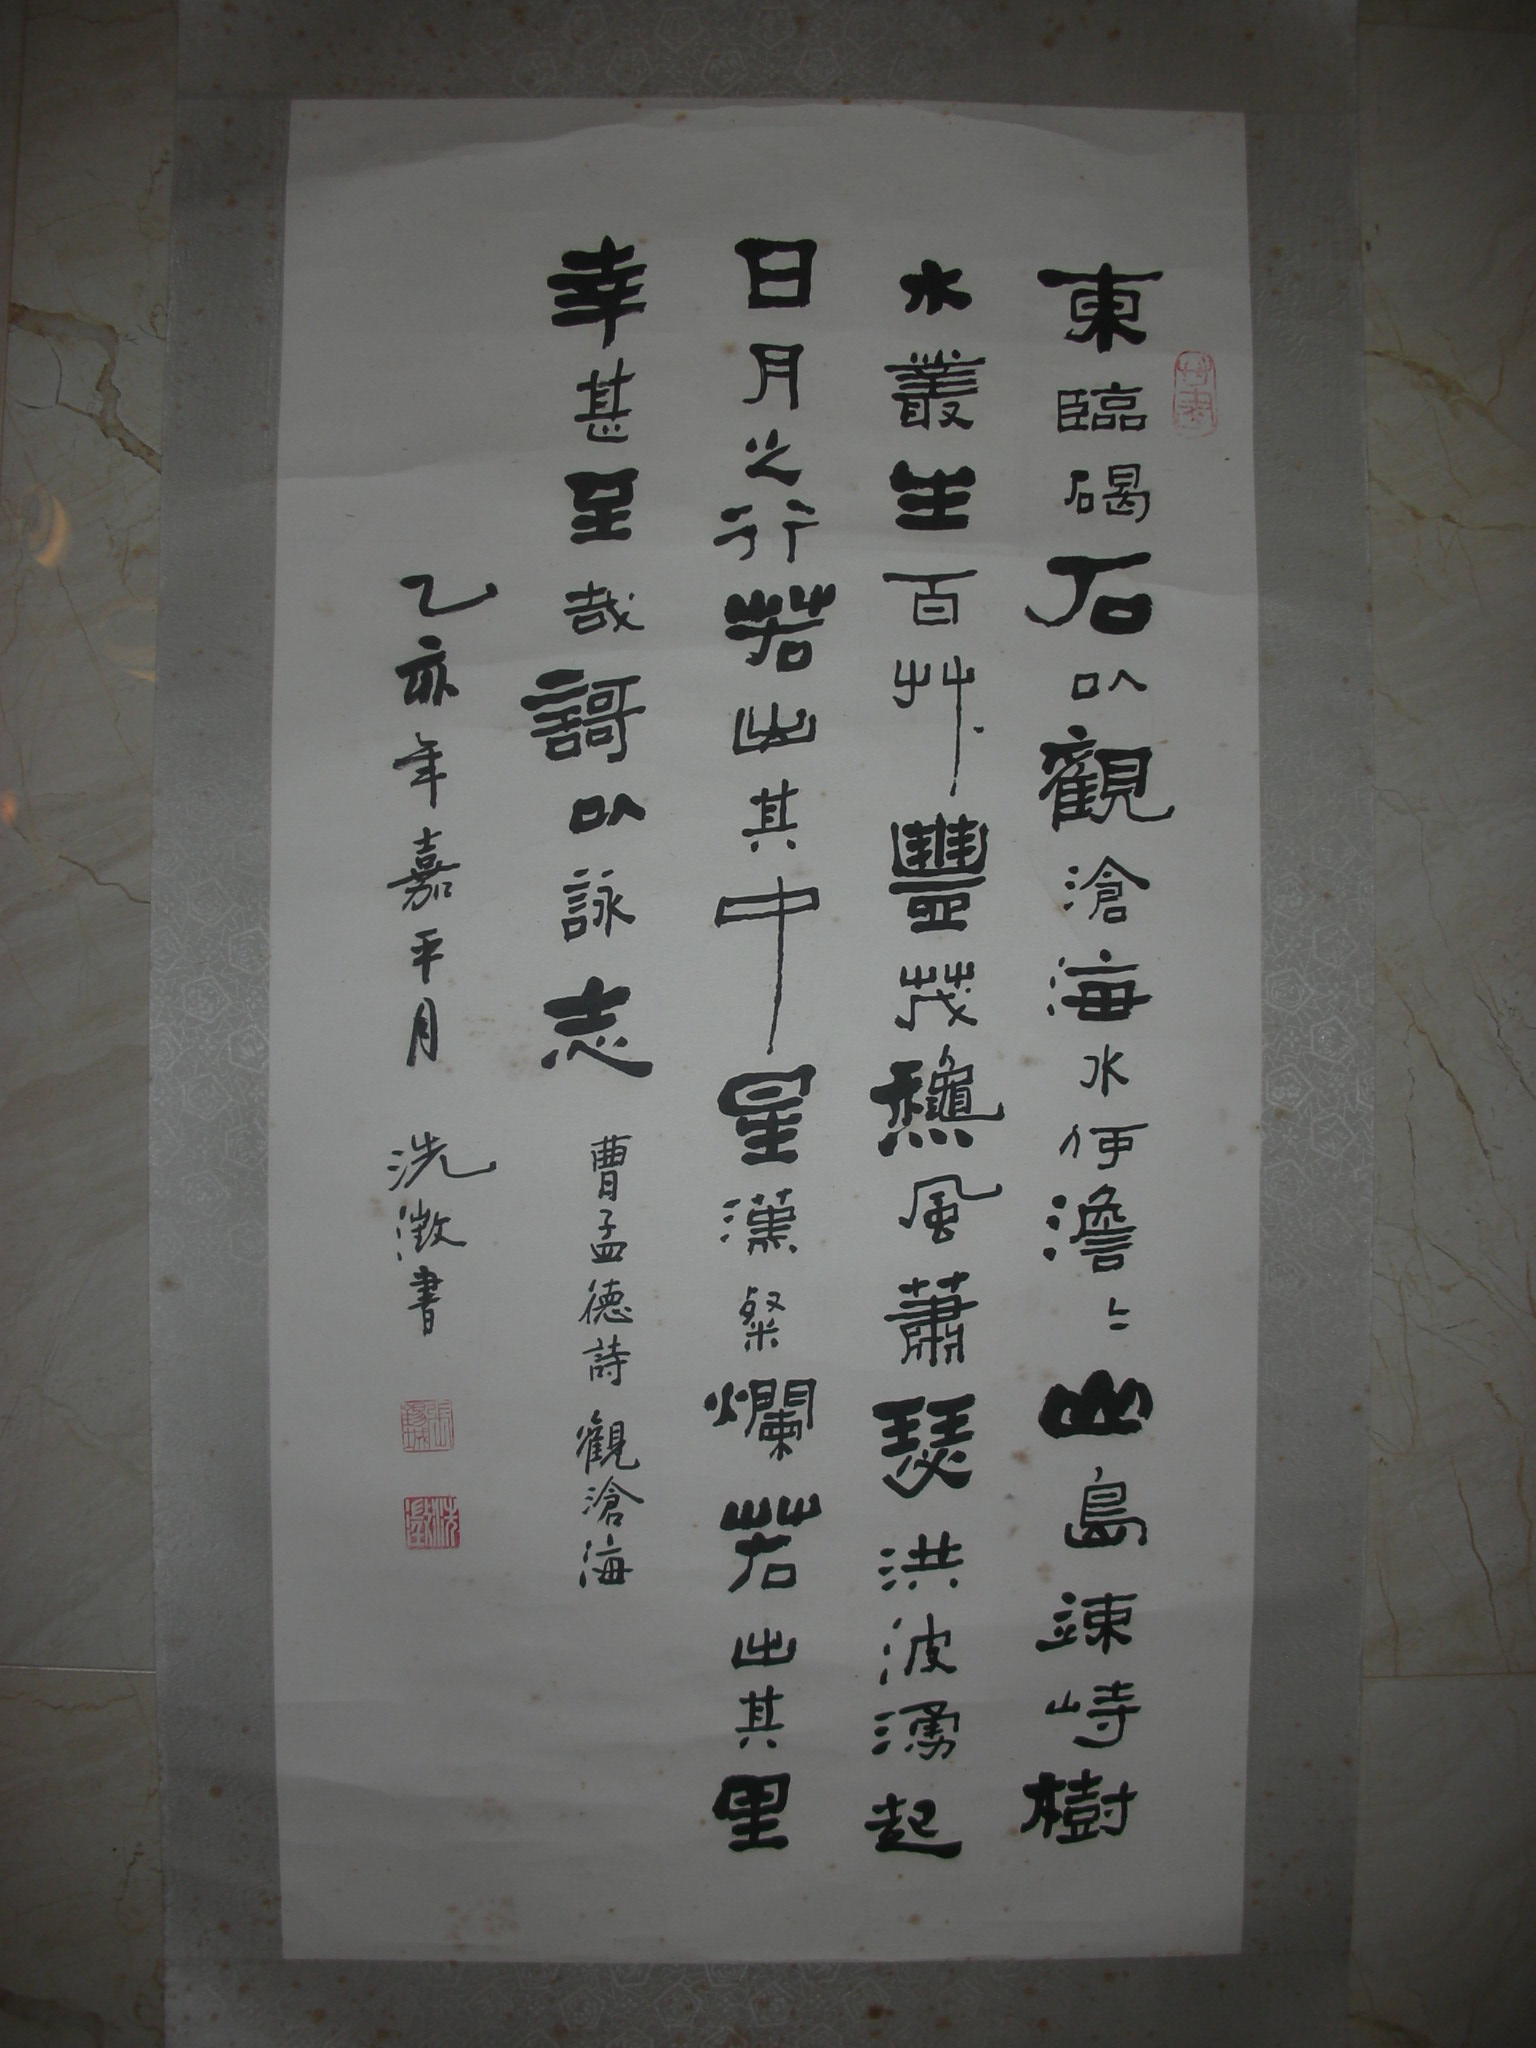 東臨碣石以觀滄海水何澹〻山島竦峙樹
木叢生百艸豐茂龝風蕭瑟洪波湧起
日月之行若出其中星漢粲爛若出其里
幸甚至哉謌以詠志 曹孟德詩 觀滄海
乙亥年嘉平月 洗澂書